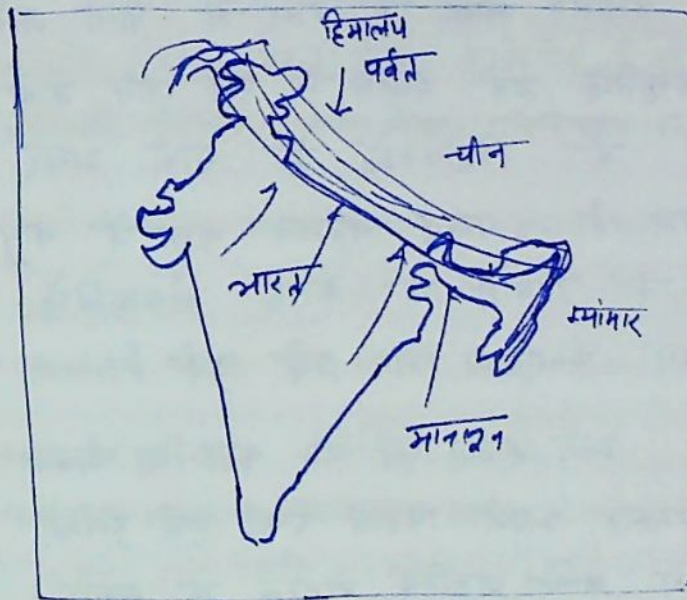 हिमालय
पर्वत
चीन
भारत
म्यांमार
मानसून